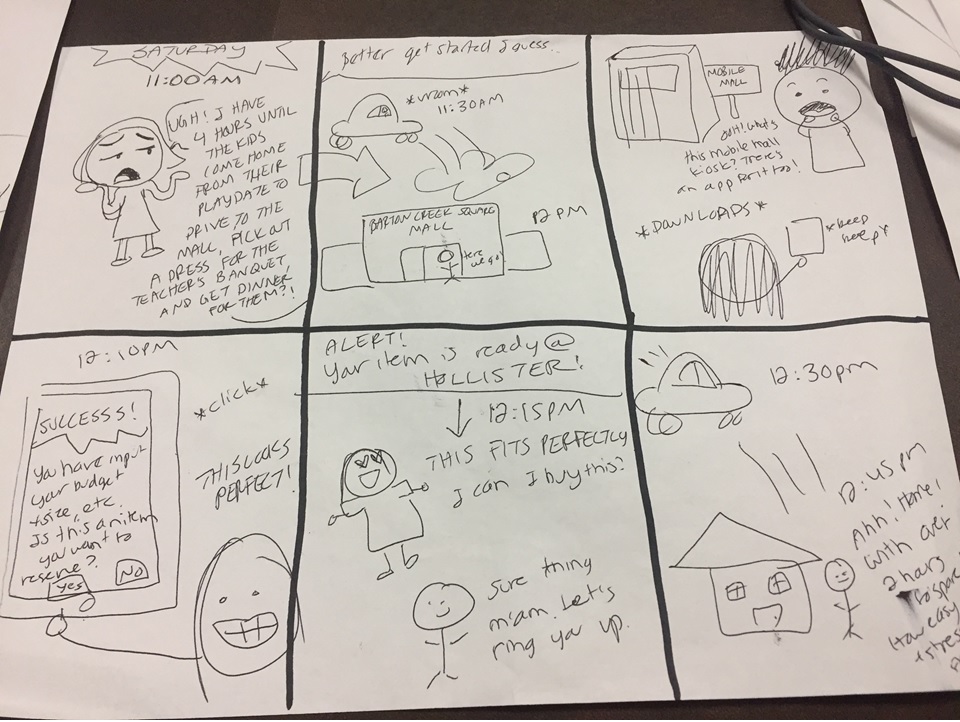 SATURDAY
11:00AM
UGH! I HAVE
4 HOURS UNTIL
THE KIDS
COME HOME
FROM THEIR
PLAYDATE TO
DRIVE TO THE
MALL, PICK OUT
A DRESS, FOR THE
TEACHER'S BANQUET,
AND GET DINNER
FOR THEM?!
Better get started I guess..
*vroom*
11:30AM
BARTON CREEK SQUARE
MALL
12PM
Here
we go!
MOBILE
MALL
OOH! What's
this mobile mall
kiosk? There's
an app for it too!
*DOWNLOADS*
*beep
beep*
12:10PM
SUCCESSS!
You have input
your budget
+size, etc.
Is this an item
you want to
reserve?
Yes
NO
*click*
THIS LOOKS
PERFECT!
ALERT!
Your item is ready @
HOLLISTER!
12:15PM
THIS FITS PERFECTLY
I can I buy this?
Sure thing
m'am. Let's
ring you up.
12:30pm
12:45pm
Ahh! Home!
with over
2 hours
to spare
How easy
+ stress